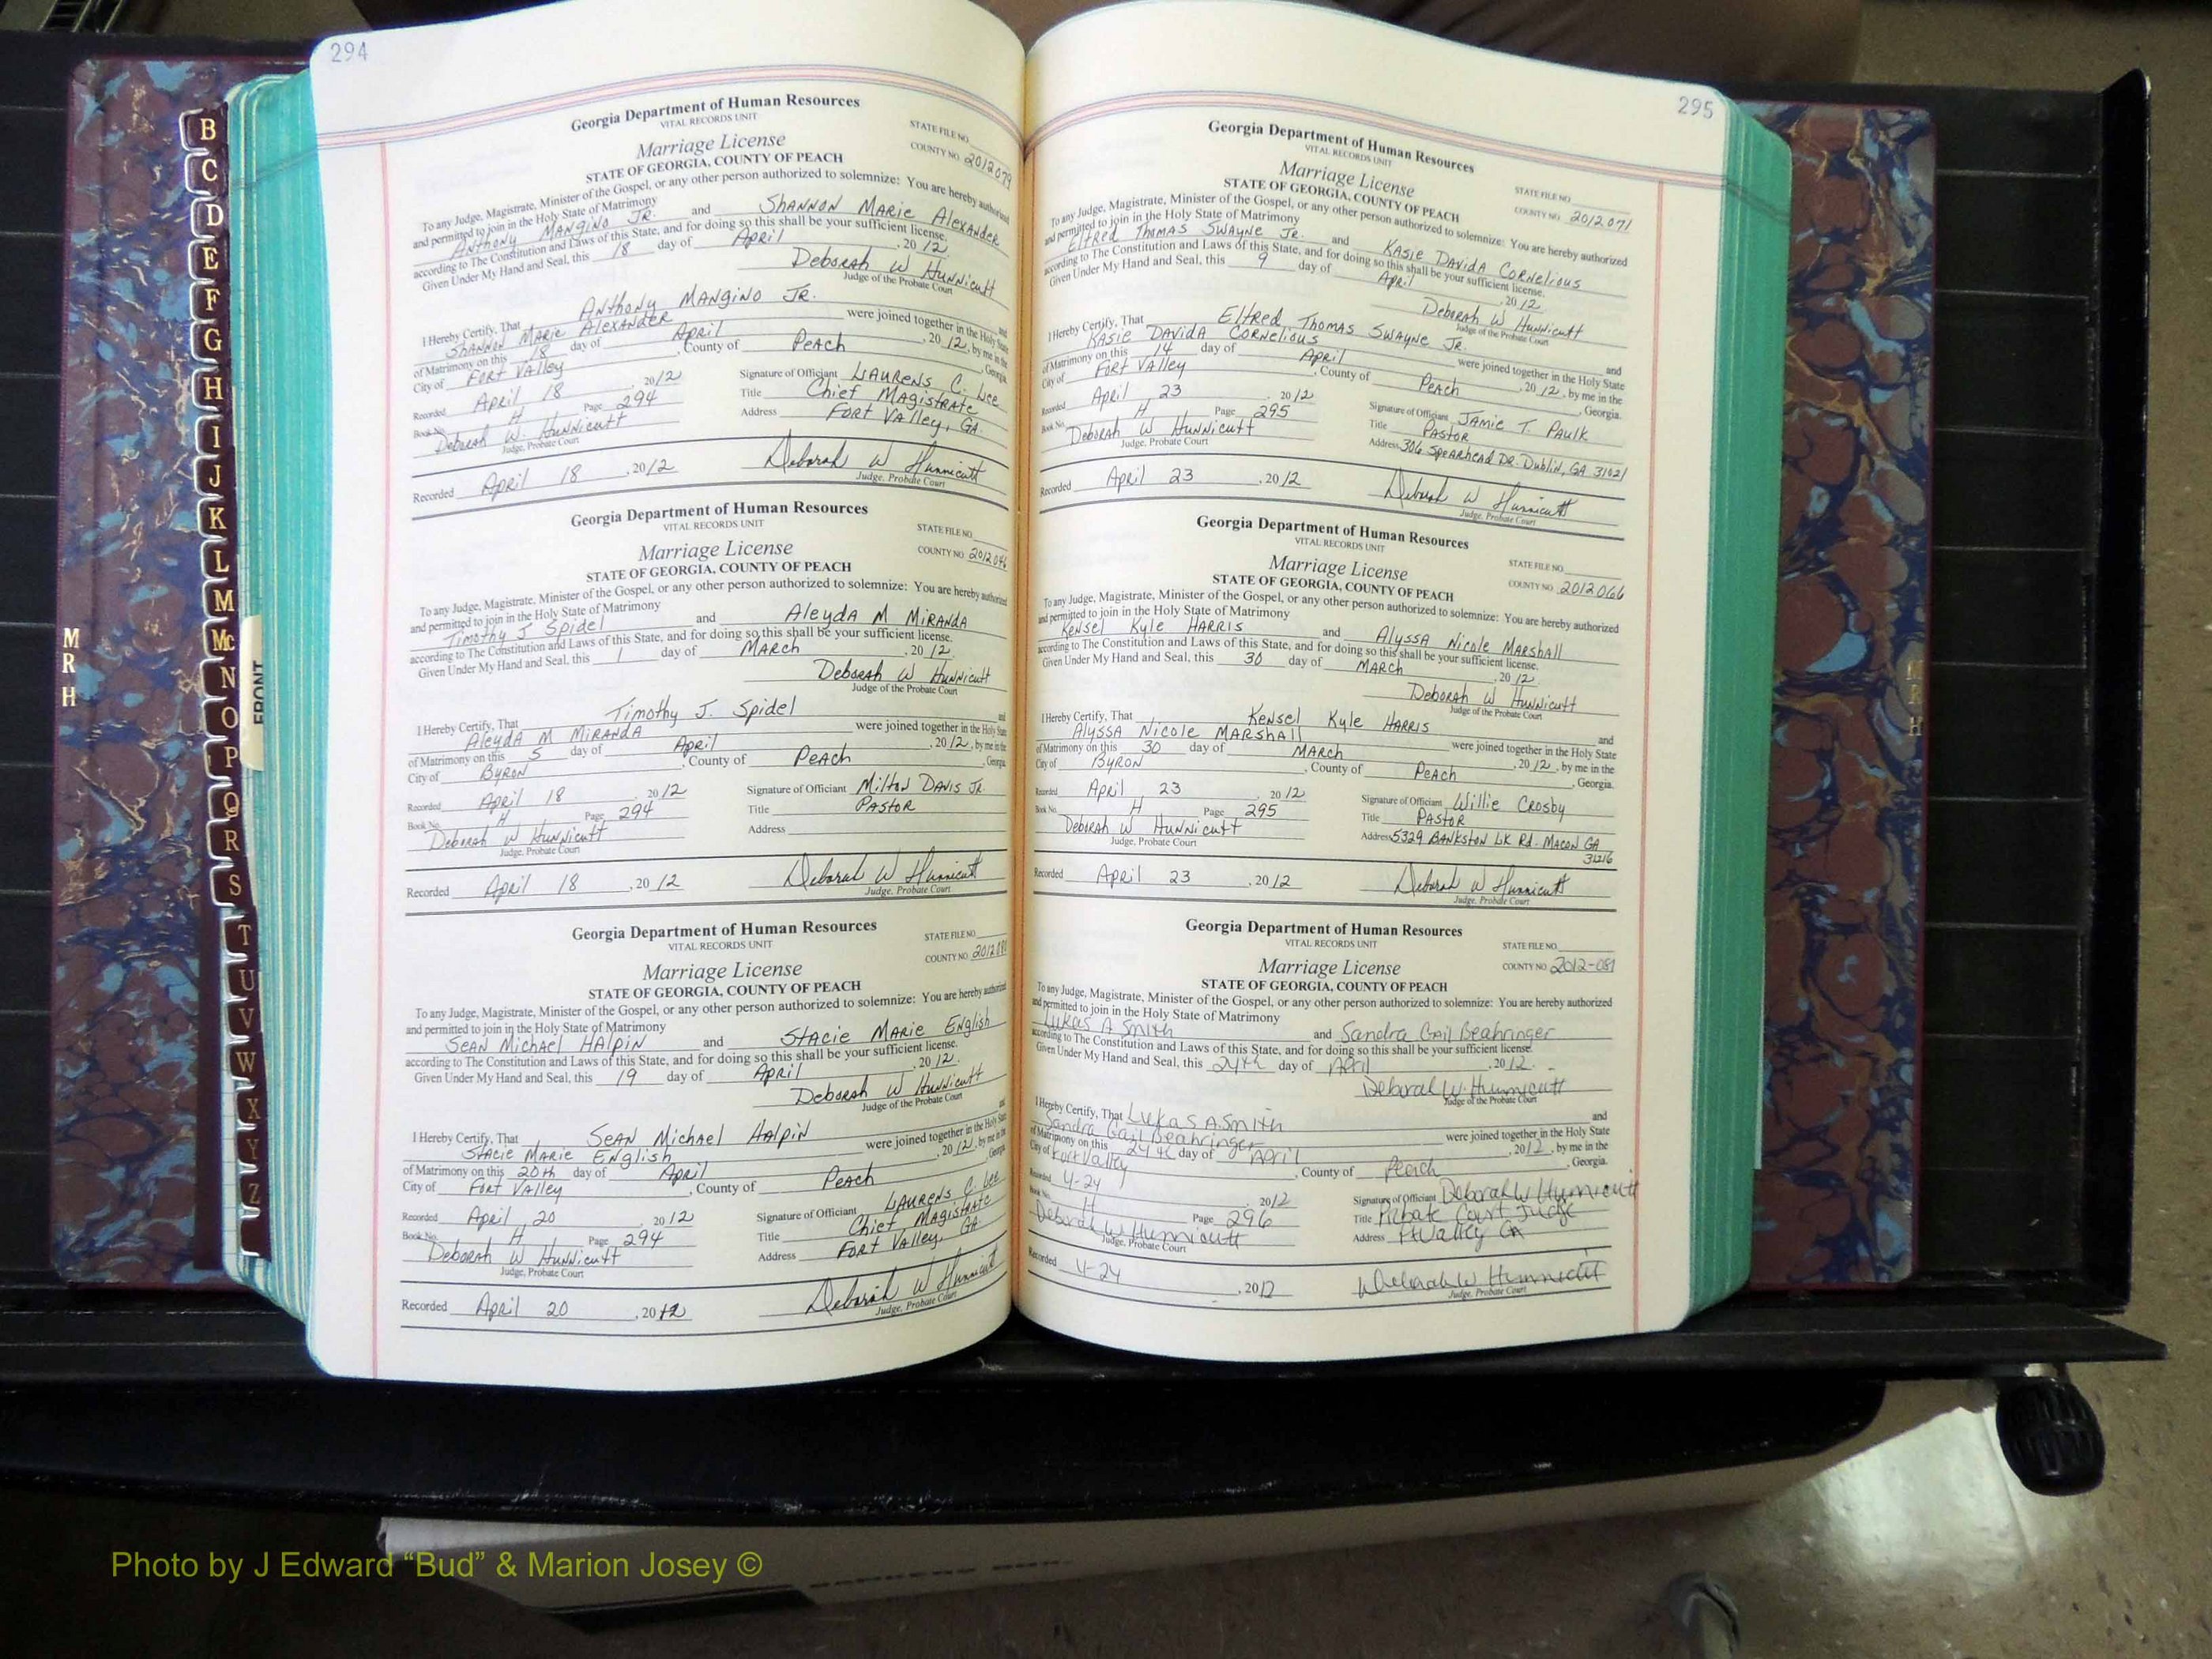 294
Georgia Department of Human Resources
VITAL RECORDS UNIT
STATE FILE NO.
Marriage License
COUNTY NO. 2012079
STATE OF GEORGIA, COUNTY OF PEACH
To any Judge, Magistrate, Minister of the Gospel, or any other person authorized to solemnize: You are hereby authorized
and permitted to join in the Holy State of Matrimony
Anthony Mangino Jr. and Shannon Marie Alexander
according to The Constitution and Laws of this State, and for doing so this shall be your sufficient license.
Given Under My Hand and Seal, this 18 day of April, 2012
Deborah W Hunnicutt
Judge of the Probate Court
I Hereby Certify, That Anthony Mangino Jr. and
Shannon Marie Alexander were joined together in the Holy State
of Matrimony on this 18 day of April, 2012, by me in the
City of Fort Valley, County of Peach, Georgia.
Recorded April 18, 2012 Signature of Officiant Laurens C. Lee
Book No. H Page 294 Title Chief Magistrate
Deborah W. Hunnicutt Address Fort Valley, GA.
Judge, Probate Court
Recorded April 18, 2012 Deborah W Hunnicutt
Judge, Probate Court
Georgia Department of Human Resources
VITAL RECORDS UNIT
STATE FILE NO.
Marriage License
COUNTY NO.
STATE OF GEORGIA, COUNTY OF PEACH
To any Judge, Magistrate, Minister of the Gospel, or any other person authorized to solemnize: You are hereby authorized
and permitted to join in the Holy State of Matrimony
Timothy J. Spidel and Aleyda M Miranda
according to The Constitution and Laws of this State, and for doing so this shall be your sufficient license.
Given Under My Hand and Seal, this 1 day of March, 2012
Deborah W Hunnicutt
Judge of the Probate Court
I Hereby Certify, That Timothy J. Spidel and
Aleyda M Miranda were joined together in the Holy State
of Matrimony on this 5 day of April, 2012, by me in the
City of Byron, County of Peach, Georgia
Recorded April 18 2012 Signature of Officiant Milton Davis Jr
Book No. H Page 294 Title Pastor
Deborah W Hunnicutt Address
Judge, Probate Court
Recorded April 18, 2012 Deborah W Hunnicutt
Judge, Probate Court
Georgia Department of Human Resources
VITAL RECORDS UNIT
STATE FILE NO.
Marriage License
COUNTY NO.
STATE OF GEORGIA, COUNTY OF PEACH
To any Judge, Magistrate, Minister of the Gospel, or any other person authorized to solemnize: You are hereby authorized
and permitted to join in the Holy State of Matrimony
Sean Michael Halpin and Stacie Marie English
according to The Constitution and Laws of this State, and for doing so this shall be your sufficient license.
Given Under My Hand and Seal, this 19 day of April, 2012.
Deborah W Hunnicutt
Judge of the Probate Court
I Hereby Certify, That Sean Michael Halpin and
Stacie Marie English were joined together in the Holy State
of Matrimony on this 20th day of April, 2012, by me in the
City of Fort Valley, County of Peach, Georgia
Recorded April 20, 2012 Signature of Officiant Laurens C. Lee
Book No. H Page 294 Title Chief Magistrate
Deborah W Hunnicutt Address Fort Valley, GA.
Judge, Probate Court
Recorded April 20, 2012 Deborah W Hunnicutt
Judge, Probate Court
295
Georgia Department of Human Resources
VITAL RECORDS UNIT
STATE FILE NO.
Marriage License
COUNTY NO. 2012071
STATE OF GEORGIA, COUNTY OF PEACH
To any Judge, Magistrate, Minister of the Gospel, or any other person authorized to solemnize: You are hereby authorized
and permitted to join in the Holy State of Matrimony
Elfred Thomas Swayne Jr. and Kasie Davida Cornelious
according to The Constitution and Laws of this State, and for doing so this shall be your sufficient license.
Given Under My Hand and Seal, this 9 day of April, 2012
Deborah W Hunnicutt
Judge of the Probate Court
I Hereby Certify, That Elfred Thomas Swayne Jr. and
Kasie Davida Cornelious were joined together in the Holy State
of Matrimony on this 14 day of April, 2012, by me in the
City of Fort Valley, County of Peach, Georgia.
Recorded April 23, 2012 Signature of Officiant Jamie T. Paulk
Book No. H Page 295 Title Pastor
Deborah W Hunnicutt Address 306 Spearhead Dr. Dublin, GA 31021
Judge, Probate Court
Recorded April 23, 2012 Deborah W Hunnicutt
Judge, Probate Court
Georgia Department of Human Resources
VITAL RECORDS UNIT
STATE FILE NO.
Marriage License
COUNTY NO. 2012066
STATE OF GEORGIA, COUNTY OF PEACH
To any Judge, Magistrate, Minister of the Gospel, or any other person authorized to solemnize: You are hereby authorized
and permitted to join in the Holy State of Matrimony
Kensel Kyle Harris and Alyssa Nicole Marshall
according to The Constitution and Laws of this State, and for doing so this shall be your sufficient license.
Given Under My Hand and Seal, this 30 day of March, 2012.
Deborah W Hunnicutt
Judge of the Probate Court
I Hereby Certify, That Kensel Kyle Harris and
Alyssa Nicole Marshall were joined together in the Holy State
of Matrimony on this 30 day of March, 2012, by me in the
City of Byron, County of Peach, Georgia.
Recorded April 23, 2012 Signature of Officiant Willie Crosby
Book No. H Page 295 Title Pastor
Deborah W Hunnicutt Address 5329 Bankston Lk Rd. Macon GA
Judge, Probate Court 31216
Recorded April 23, 2012 Deborah W Hunnicutt
Judge, Probate Court
Georgia Department of Human Resources
VITAL RECORDS UNIT
STATE FILE NO.
Marriage License
COUNTY NO. 2012-081
STATE OF GEORGIA, COUNTY OF PEACH
To any Judge, Magistrate, Minister of the Gospel, or any other person authorized to solemnize: You are hereby authorized
and permitted to join in the Holy State of Matrimony
Lukas A Smith and Sandra Gail Beahringer
according to The Constitution and Laws of this State, and for doing so this shall be your sufficient license.
Given Under My Hand and Seal, this 24th day of April, 2012.
Deborah W. Hunnicutt
Judge of the Probate Court
I Hereby Certify, That Lukas A Smith and
Sandra Gail Beahringer were joined together in the Holy State
of Matrimony on this 24th day of April, 2012, by me in the
City of Fort Valley, County of Peach, Georgia.
Recorded 4-24, 2012 Signature of Officiant Deborah W Hunnicutt
Book No. H Page 296 Title Probate Court Judge
Deborah W Hunnicutt Address Ft Valley Ga
Judge, Probate Court
Recorded 4-24, 2012 Deborah W Hunnicutt
Judge, Probate Court
B
C
D
E
F
G
H
I
J
K
L
M
Mc
N
O
P
Q
R
S
T
U
V
W
X
Y
Z
FRONT
M
R
H
M
R
H
Photo by J Edward “Bud” & Marion Josey ©